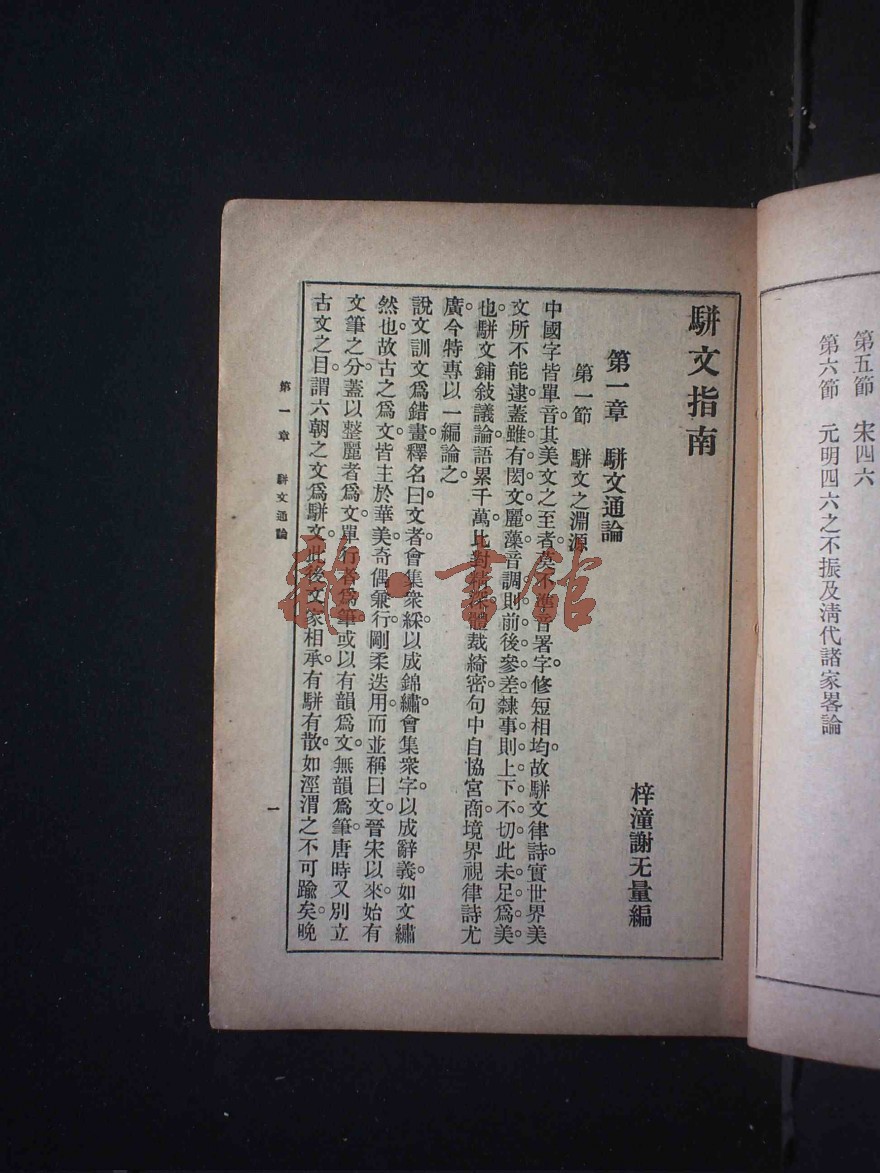 第五節　宋四六
第六節　元明四六之不振及清代諸家畧論
駢文指南
梓潼謝无量編
第一章　駢文通論
第一節　駢文之淵源
中國字皆單音。其美文之至者。莫不準音署字。修短相均。故駢文律詩。實世界美
文所不能逮。蓋雖有閎文麗藻。音調則前後參差。隸事則上下不切。此未足爲美
也。駢文鋪敍議論。語累千萬。比對 體裁綺密。句中自協宮商。境界視律詩尤
廣。今特專以一編論之。
說文訓文爲錯畫。釋名曰。文者。會集衆綵。以成錦繡。會集衆字。以成辭義。如文繡
然也。故古之爲文。皆主於華美。奇偶兼行。剛柔迭用。而並稱曰文。晉宋以來。始有
文筆之分。蓋以整麗者爲文。單行者爲筆。或以有韻爲文。無韻爲筆。唐時又別立
古文之目。謂六朝之文爲駢文。此後文家相承。有駢有散。如涇渭之不可踰矣。晚
第一章　駢文通論
一
龍書館